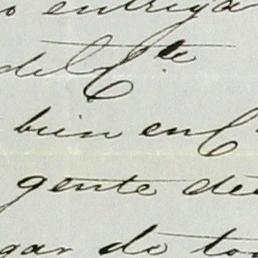 o entrega
del C.te
bien en C
gente de
gar do to